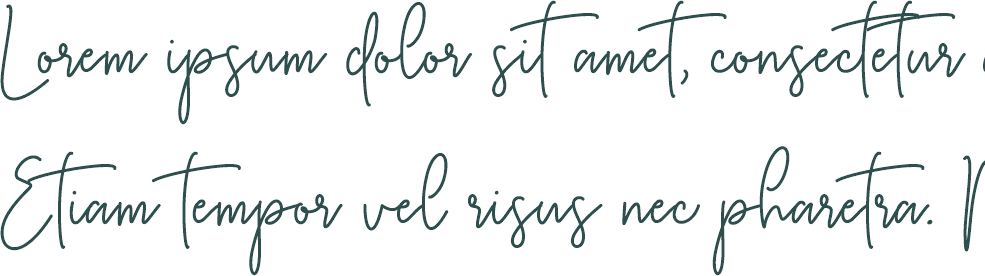 Lorem ipsum dolor sit amet, consectetur
Etiam tempor vel risus nec pharetra.